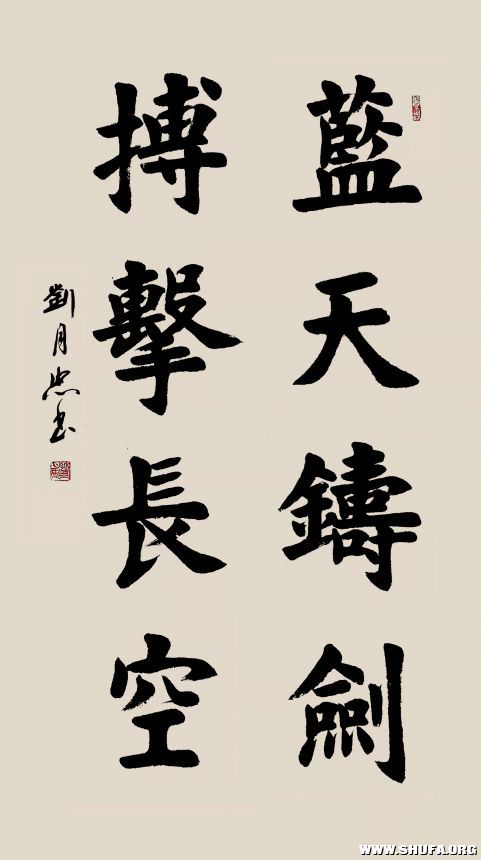 藍天鑄劍
搏擊長空
劉月忠书
WWW.SHUFA.ORG